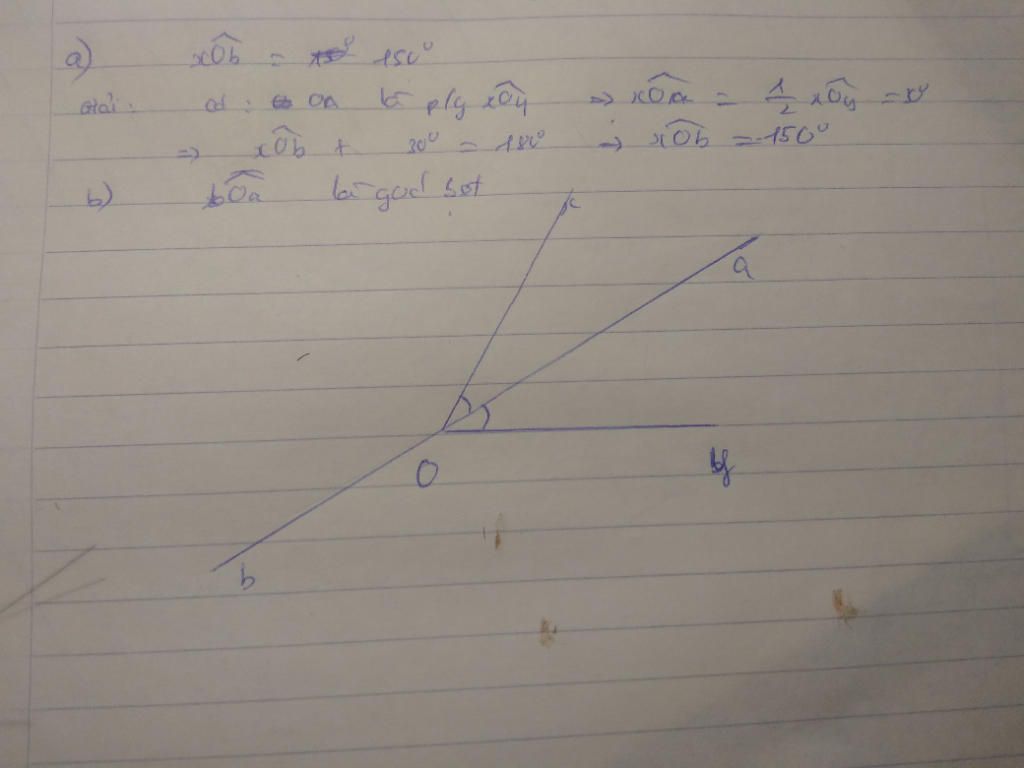 a) xÔb = 150°
Giải: có: Oa là p/g xÔy => xÔa = 1/2 xÔy = 30°
=> xÔb + 30° = 180° => xÔb = 150°
b) bÔa là góc bẹt
x
a
O
y
b